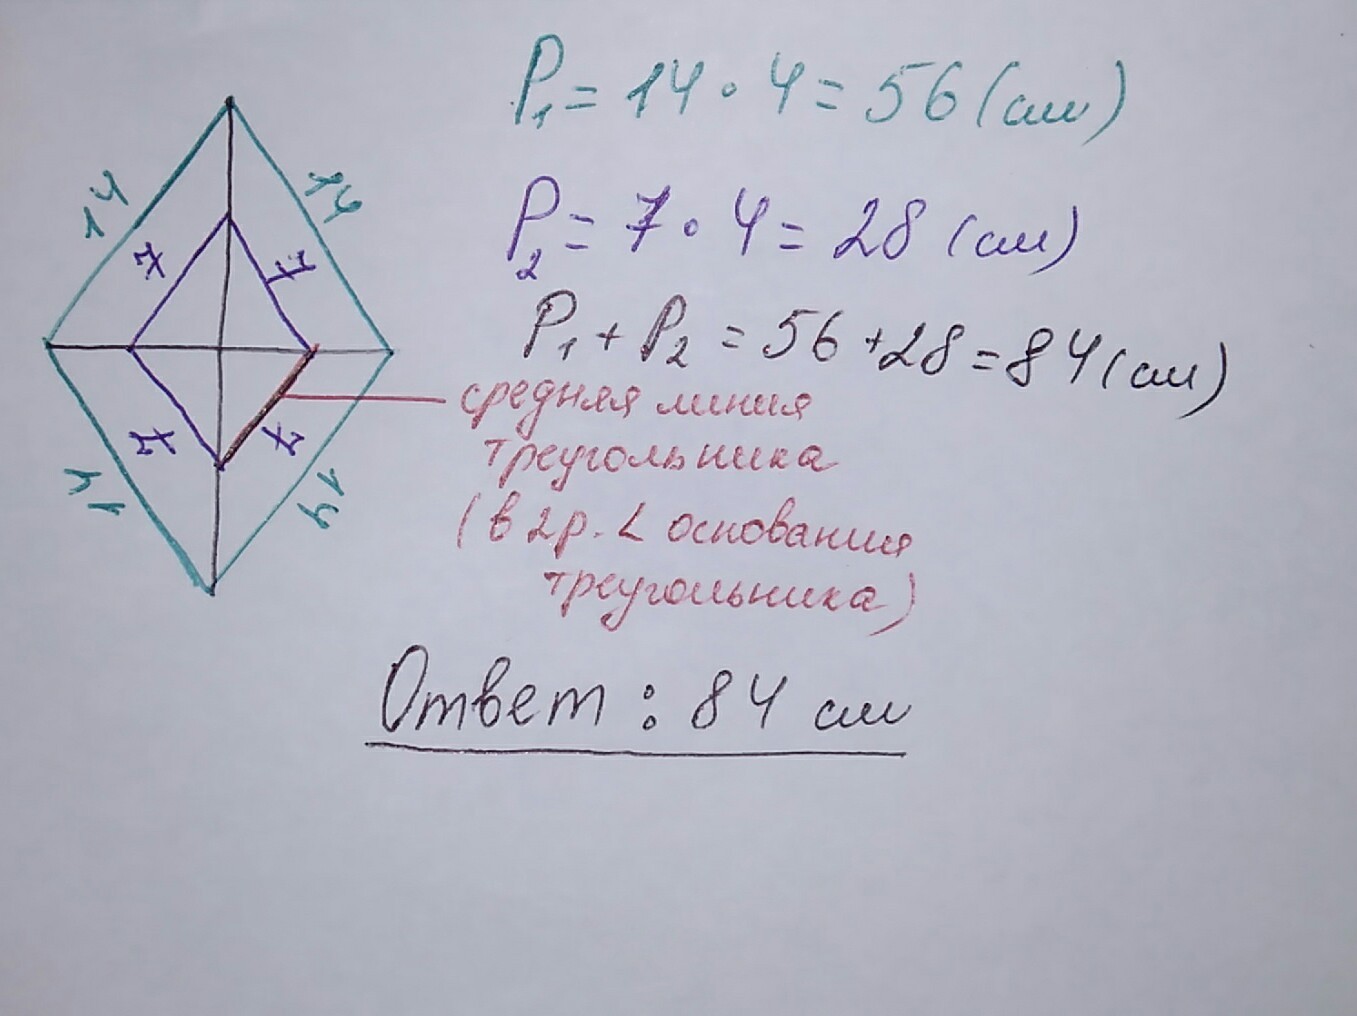 P₁ = 14 · 4 = 56 (см)
14
14
P₂ = 7 · 4 = 28 (см)
7
7
P₁ + P₂ = 56 + 28 = 84 (см)
средняя линия
треугольника
7
7
14
14
(в 2р. < основания
треугольника)
Ответ: 84 см